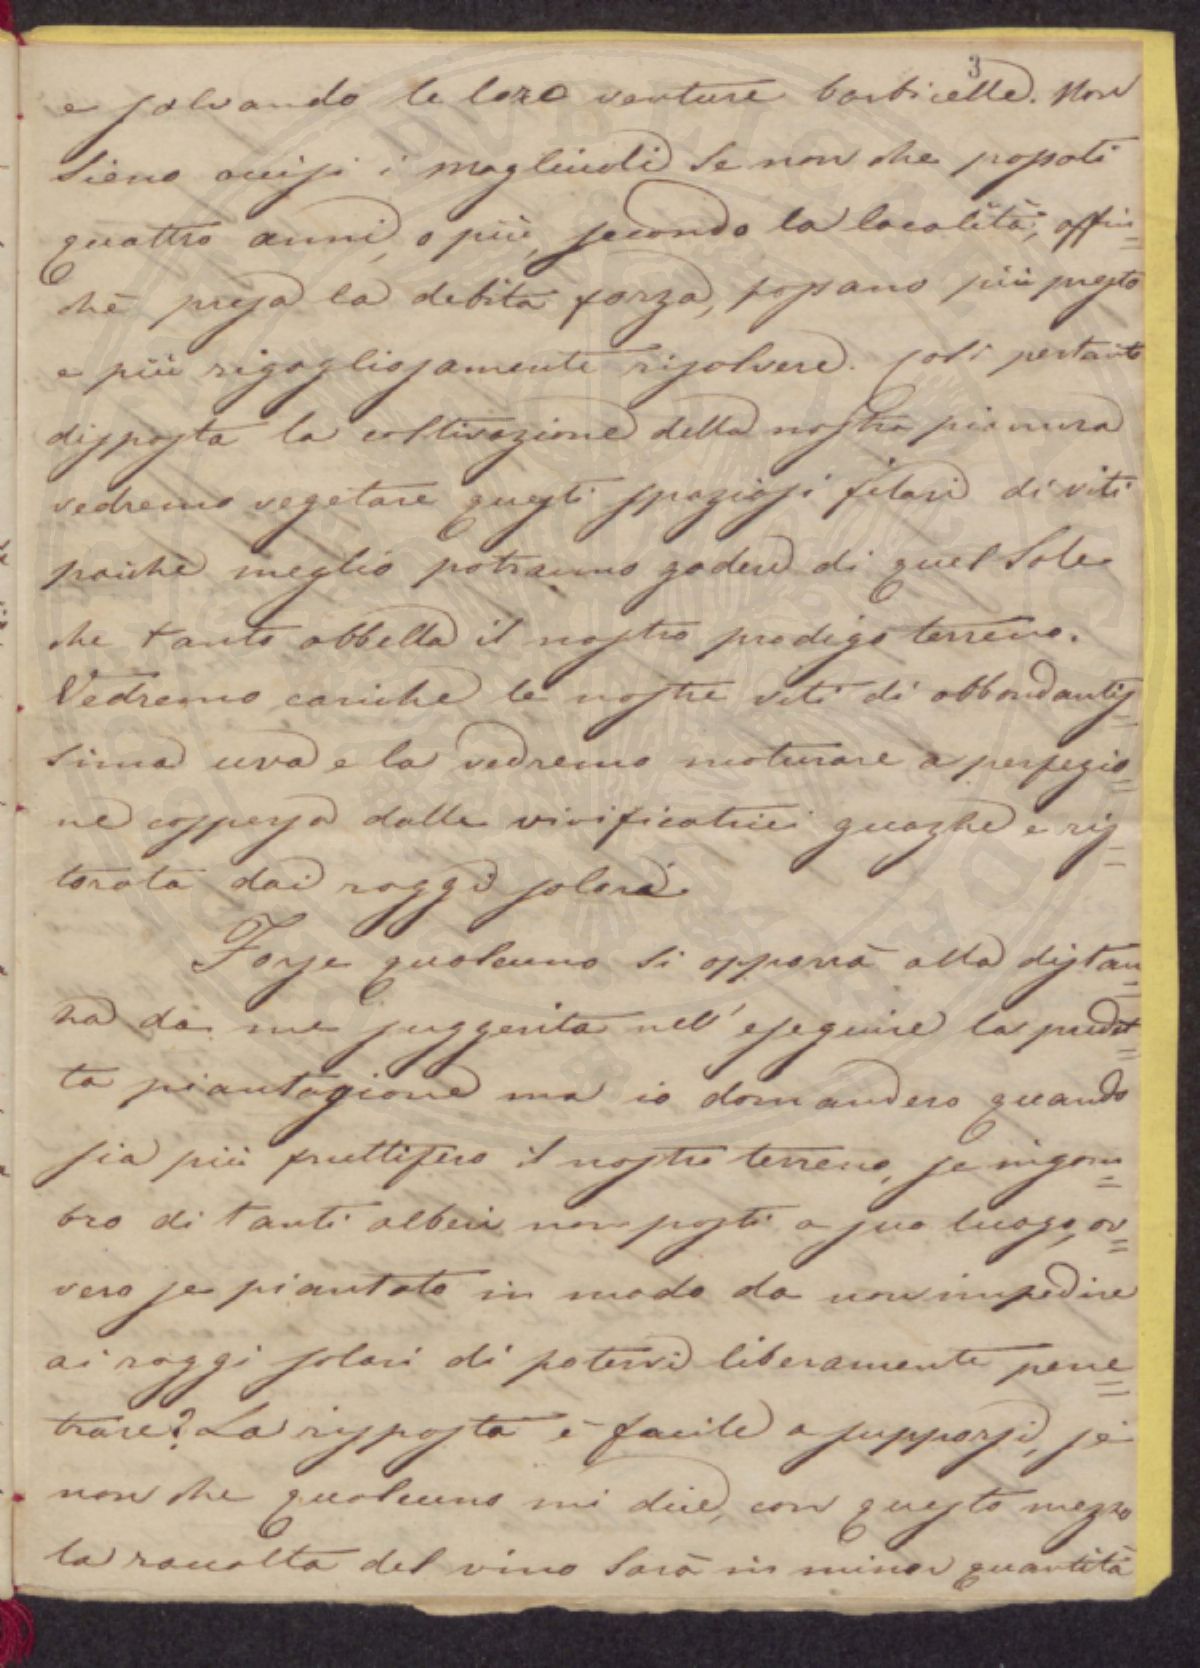 3
e salvando le loro venture barbicelle. Non
sieno recisi i magliuoli se non che passati
quattro anni, o più, secondo la località, affin=
chè presa la debita forza, possano più presto
e più rigogliosamente risolvere. Così pertanto
disposta la coltivazione della nostra pianura
vedremo vegetare questi spaziosi filari di viti
poichè meglio potranno godere di quel Sole
che tanto abbella il nostro prodigo terreno.
Vedremo cariche le nostre viti di abbondantis=
sima uva e la vedremo maturare a perfezio=
ne cospersa dalle vivificatrici guazze e ris=
torata dai raggi solari.
Forse qualcuno si opporrà alla distan=
za da me suggerita nell'eseguire la predet=
ta piantagione ma io domanderò quando
sia più fruttifero il nostro terreno, se ingom=
bro di tanti alberi non posti a suo luogo, ov=
vero se piantato in modo da non impedire
ai raggi solari di potervi liberamente pene=
trare? La risposta è facile a supporsi, se
non che qualcuno mi dice, con questo mezzo
la raccolta del vino sarà in minor quantità